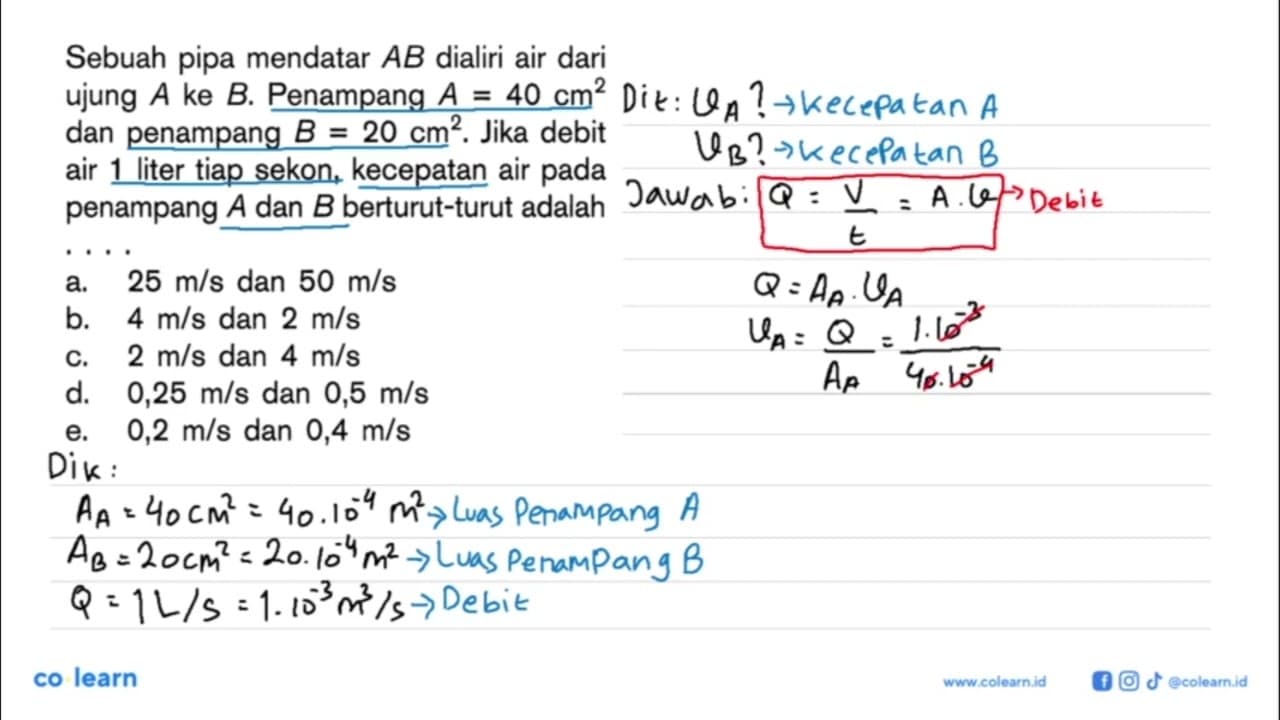 Sebuah pipa mendatar AB dialiri air dari
ujung A ke B. Penampang A = 40 cm²
dan penampang B = 20 cm². Jika debit
air 1 liter tiap sekon, kecepatan air pada
penampang A dan B berturut-turut adalah
. . . .
a. 25 m/s dan 50 m/s
b. 4 m/s dan 2 m/s
c. 2 m/s dan 4 m/s
d. 0,25 m/s dan 0,5 m/s
e. 0,2 m/s dan 0,4 m/s
Dik:
A_A = 40 cm² = 40.10⁻⁴ m² → Luas Penampang A
A_B = 20 cm² = 20.10⁻⁴ m² → Luas Penampang B
Q = 1 L/s = 1.10⁻³ m³/s → Debit
Dit: v_A? → Kecepatan A
v_B? → Kecepatan B
Jawab: Q = V/t = A.v → Debit
Q = A_A.v_A
v_A = Q/A_A = 1.10⁻³/40.10⁻⁴
co learn
www.colearn.id
@colearn.id